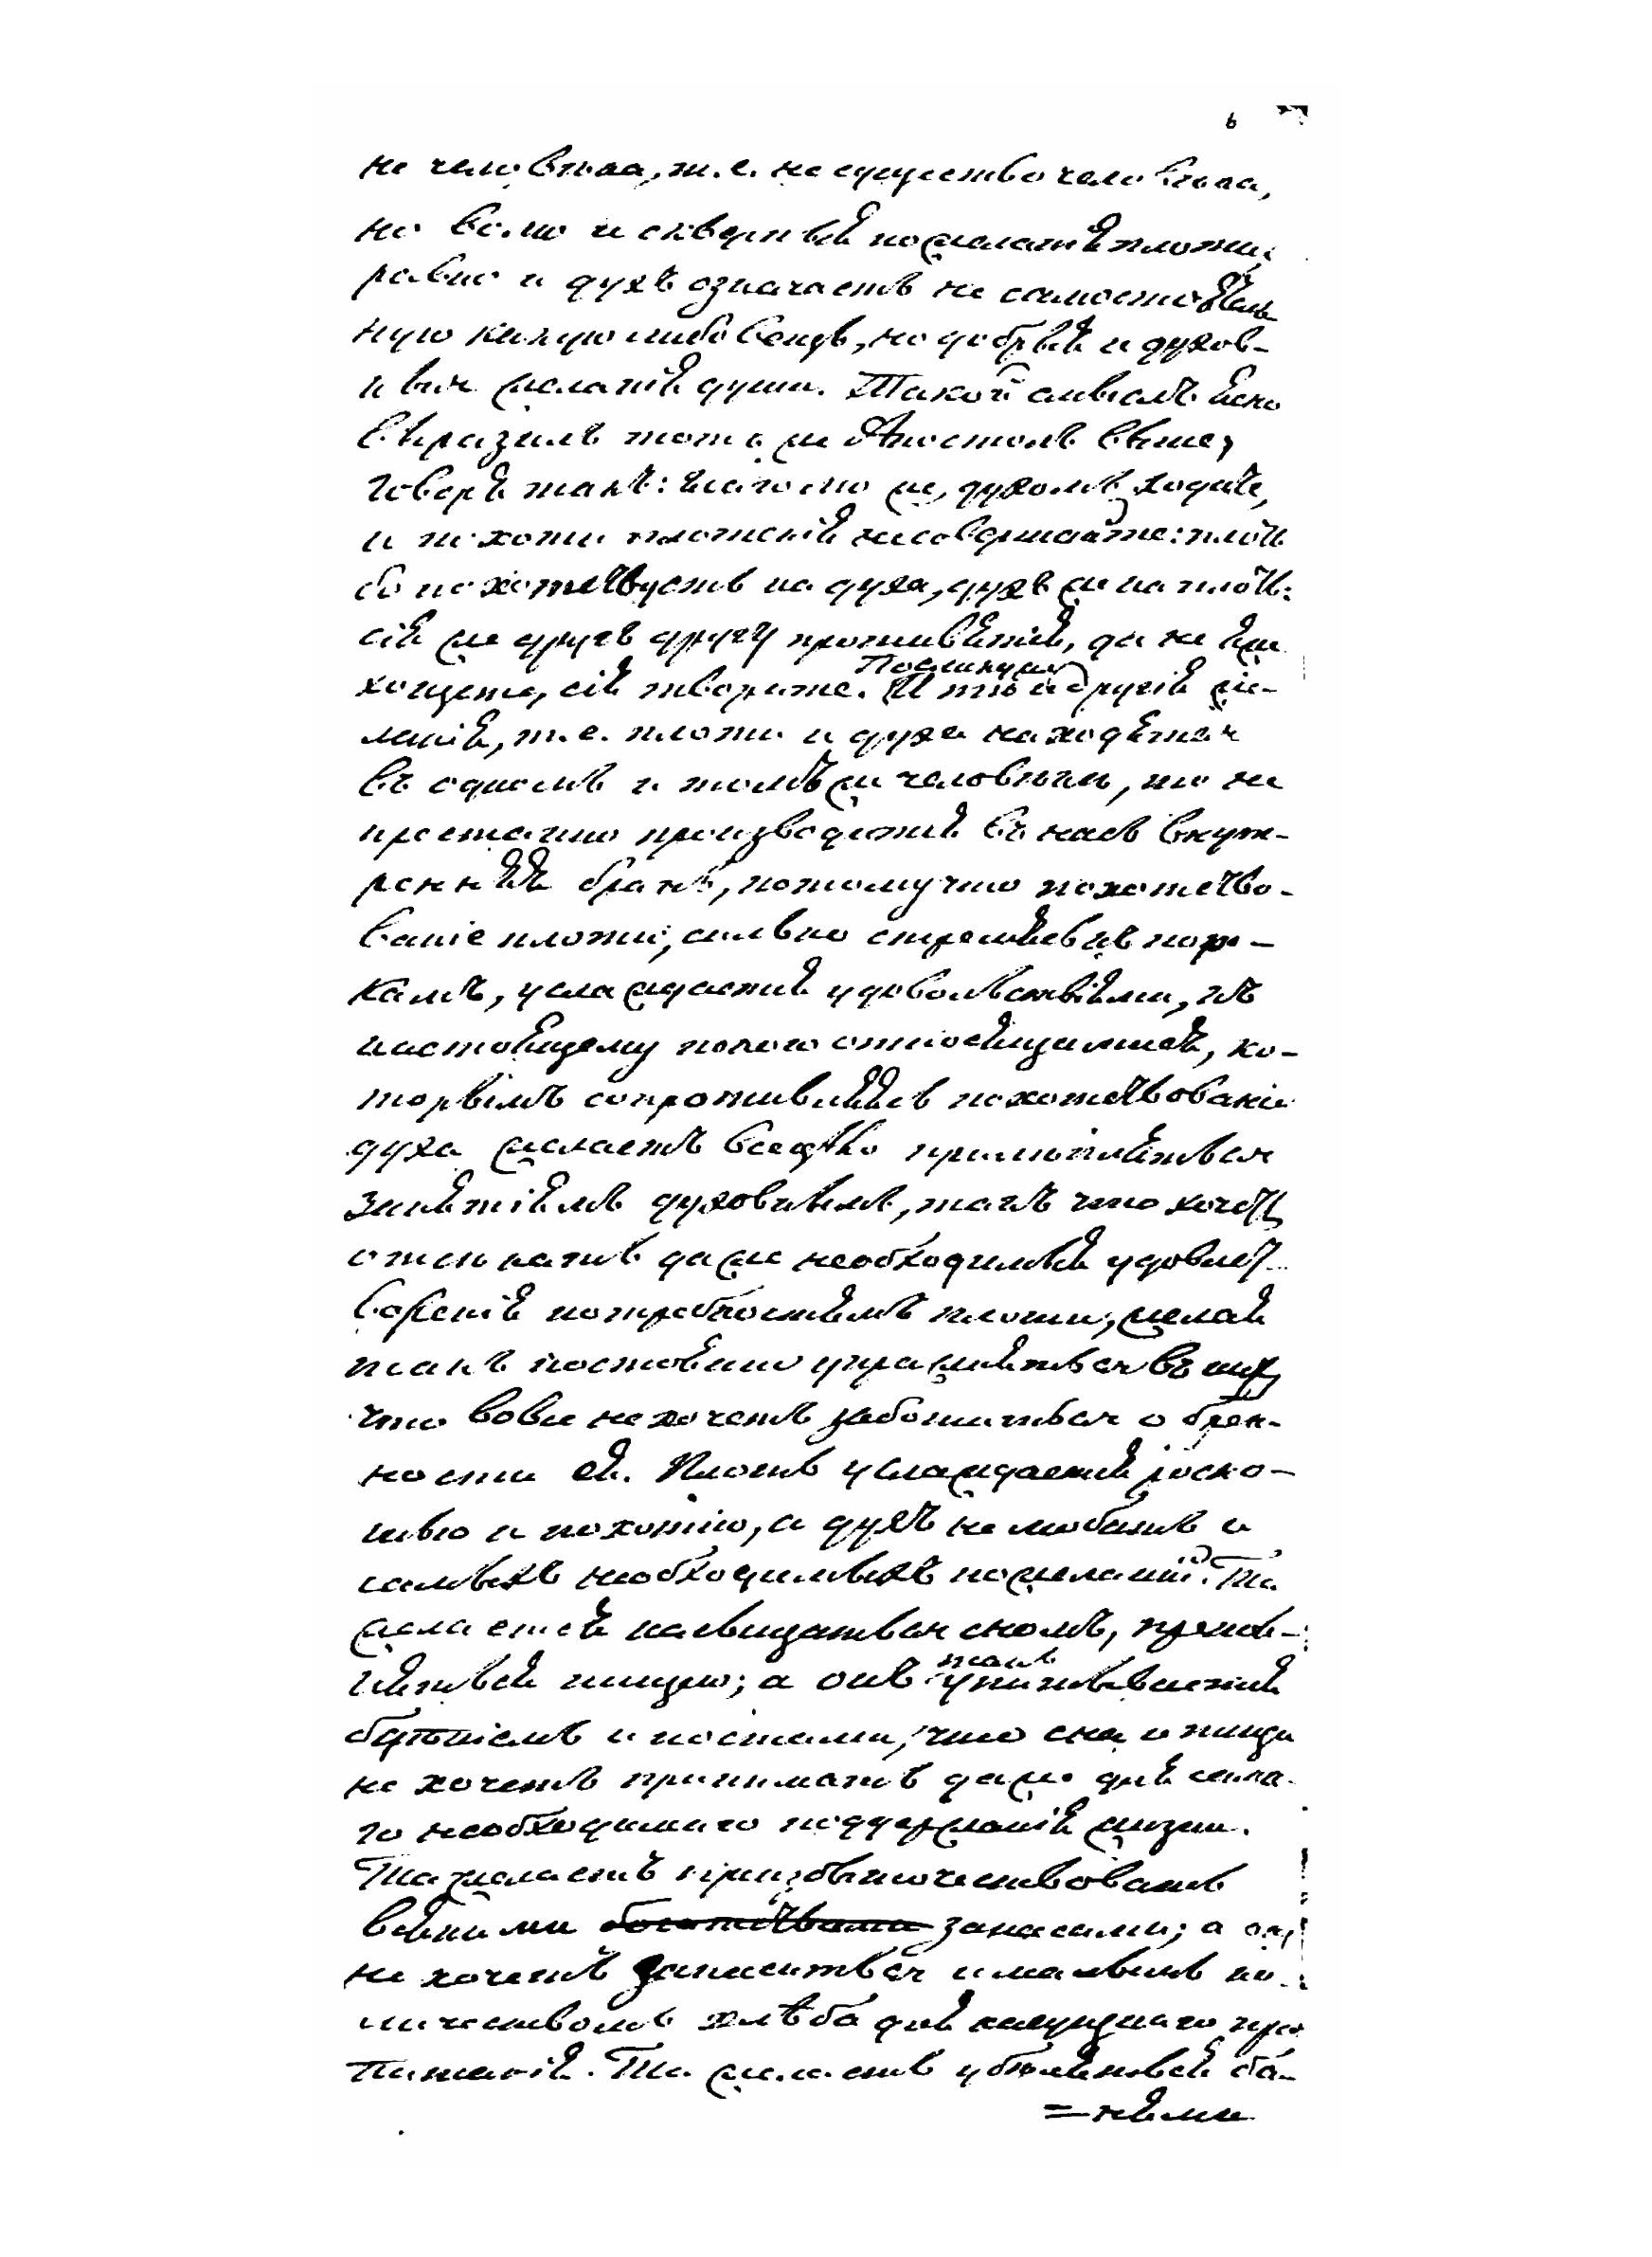 6
не человѣка, т. е. не существо человѣка,
но волю и скверныя пожеланія плоти;
равно и духъ означаетъ не самостоятель
ную какую либо вещь, но добрыя и духов-
ныя желанія души. Такой смыслъ ясно
выразилъ тотъ же Апостолъ выше,
говоря такъ: глаголю же, духомъ ходите,
и похоти плотскія не совершайте: плоть
бо похотствуетъ на духа, духъ же на плоть:
сія же другъ другу противятся, да не яже
хощете, сія творите. Поелику же
И то и другія же-
ланія, т. е. плоти и духа находятся
въ одномъ и томъ же человѣкѣ, то не
престанно производится въ насъ внут-
ренняя брань, потому что похотство-
ваніе плоти, сильно стремясь къ поро-
камъ, услаждается удовольствіями, къ
настоящему покою относящимися, ко-
торымъ сопротивляясь похотствованіе
духа желаетъ всецѣло прилѣпляться
занятіямъ духовнымъ, такъ что хочетъ
отсѣкать даже необходимыя удовлет-
воренія потребностямъ плоти, желая
такъ постоянно упражняться въ нихъ
что вовсе не хочетъ заботиться о брен-
ности ея. Плоть услаждается роско-
шью и похотію, а духъ не любитъ и
самыхъ необходимыхъ пожеланій. Та
желаетъ насыщаться сномъ, преис-
полняться пищею; а онъ такъ утончевается
бдѣніемъ и постами, что сна и пищи
не хочетъ принимать даже для сама-
го необходимаго поддержанія жизни.
Та желаетъ преизбыточествовать
всякими богатствами запасами; а онъ
не хочетъ запасаться и малымъ ко-
личествомъ хлѣба для насущнаго про
питанія. Та желаетъ убѣляться ба-
=нями